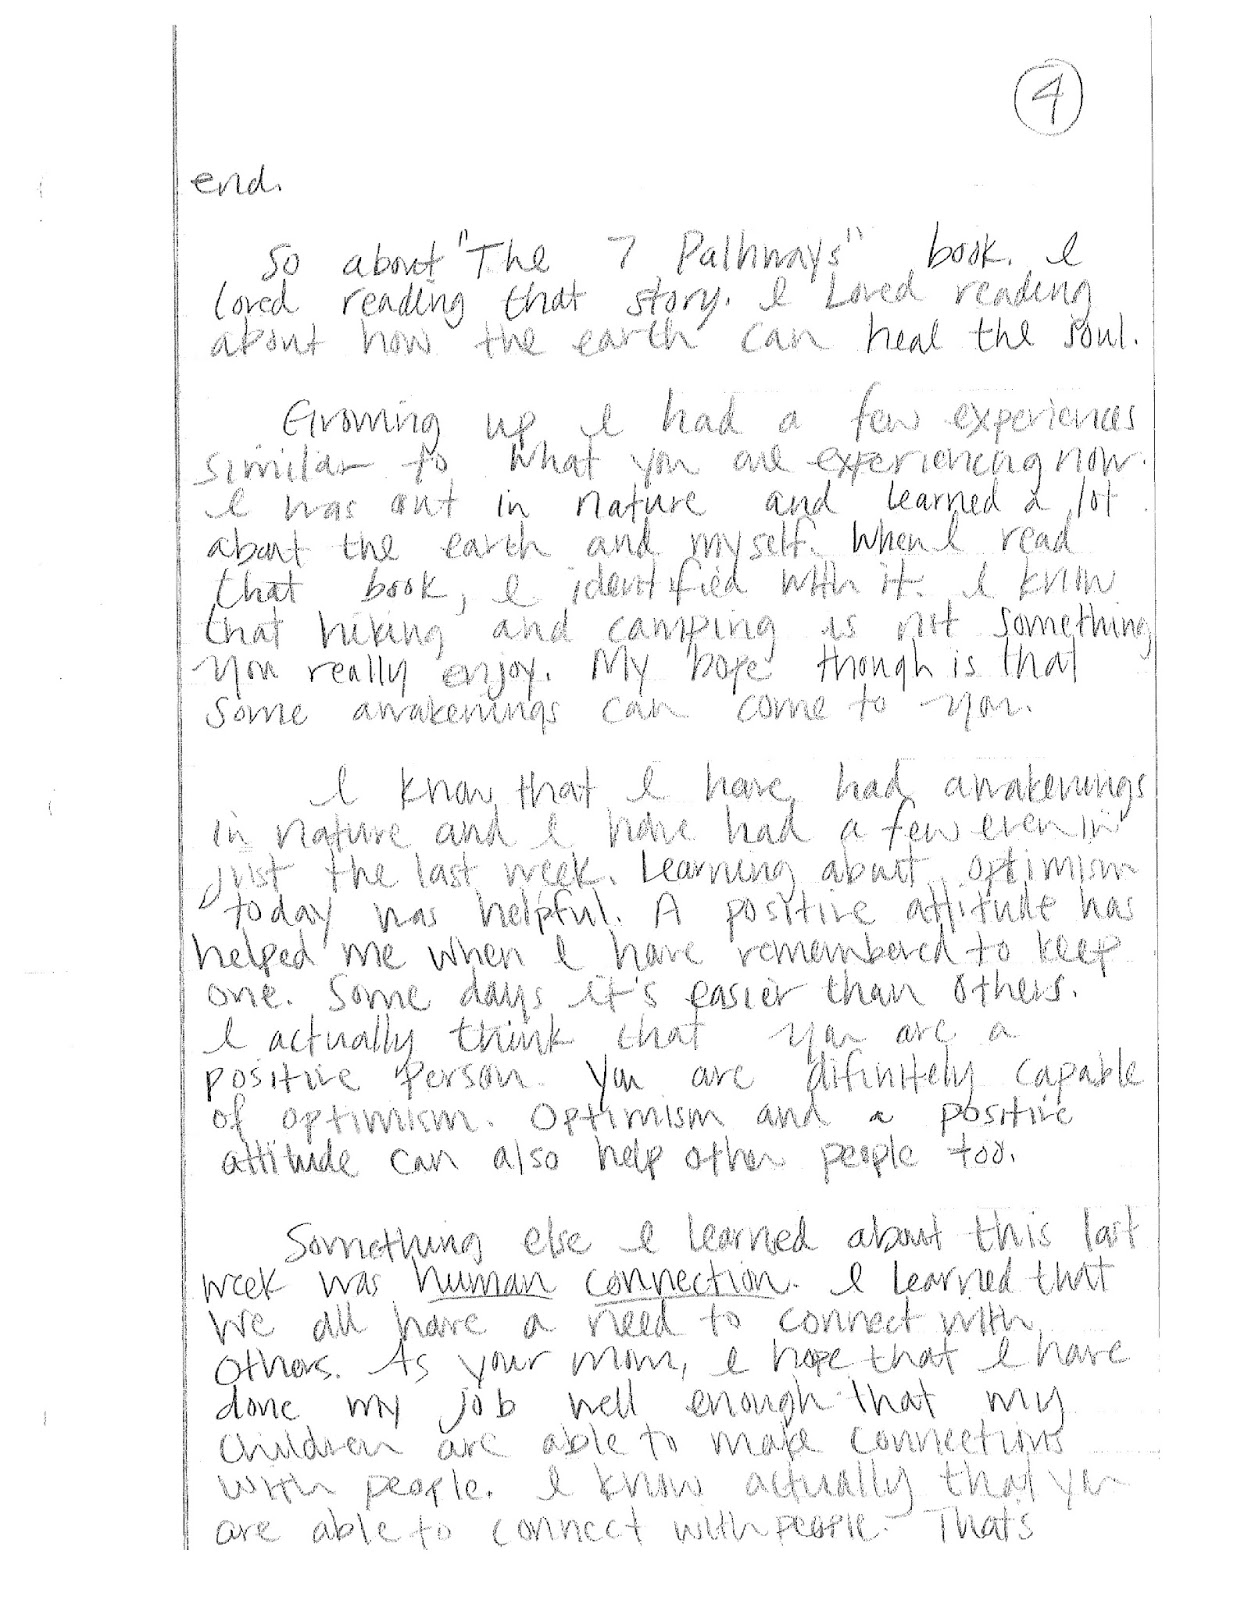 4
end.
So about "The 7 Pathways" book. I
loved reading that story. I Loved reading
about how the earth can heal the soul.
Growing up I had a few experiences
similar to what you are experiencing now.
I was out in nature and learned a lot
about the earth and myself. When I read
that book, I identified with it. I know
that hiking and camping is not something
you really enjoy. My hope though is that
some awakenings can come to you.
I know that I have had awakenings
in nature and I have had a few even in
just the last week. Learning about optimism
today was helpful. A positive attitude has
helped me when I have remembered to keep
one. Some days it's easier than others.
I actually think that you are a
positive person. You are difinitely capable
of optimism. Optimism and a positive
attitude can also help other people too.
Something else I learned about this last
week was human connection. I learned that
we all have a need to connect with
others. As your mom, I hope that I have
done my job well enough that my
children are able to make connections
with people. I know actually that you
are able to connect with people. Thats